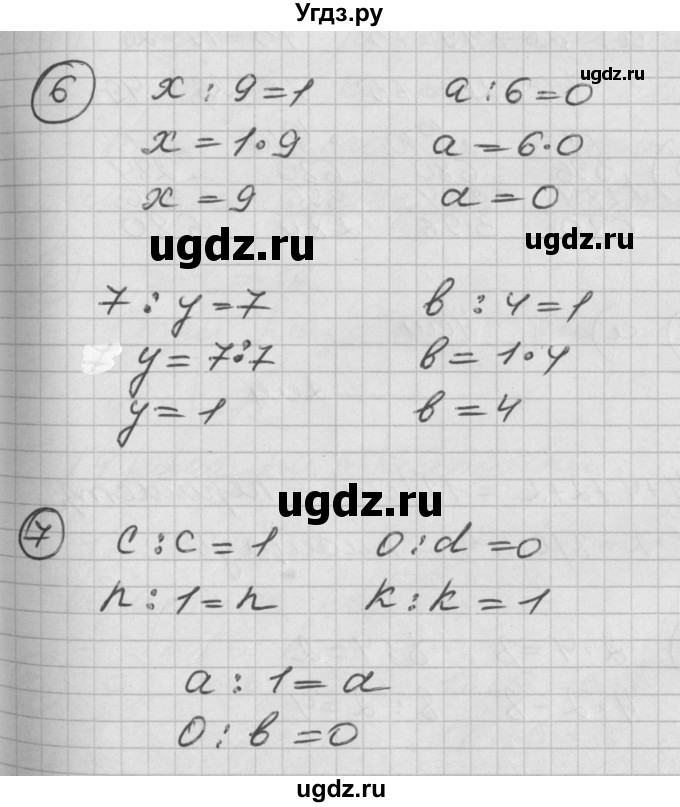 Угдз.ру
ugdz.ru
6
x : 9 = 1
x = 1·9
x = 9
a : 6 = 0
a = 6·0
a = 0
ugdz.ru
ugdz.ru
7 : y = 7
y = 7:7
y = 1
в : 4 = 1
в = 1·4
в = 4
ugdz.ru
7
c : c = 1
0 : d = 0
n : 1 = n
k : k = 1
a : 1 = a
0 : в = 0
ugdz.ru
ugdz.ru